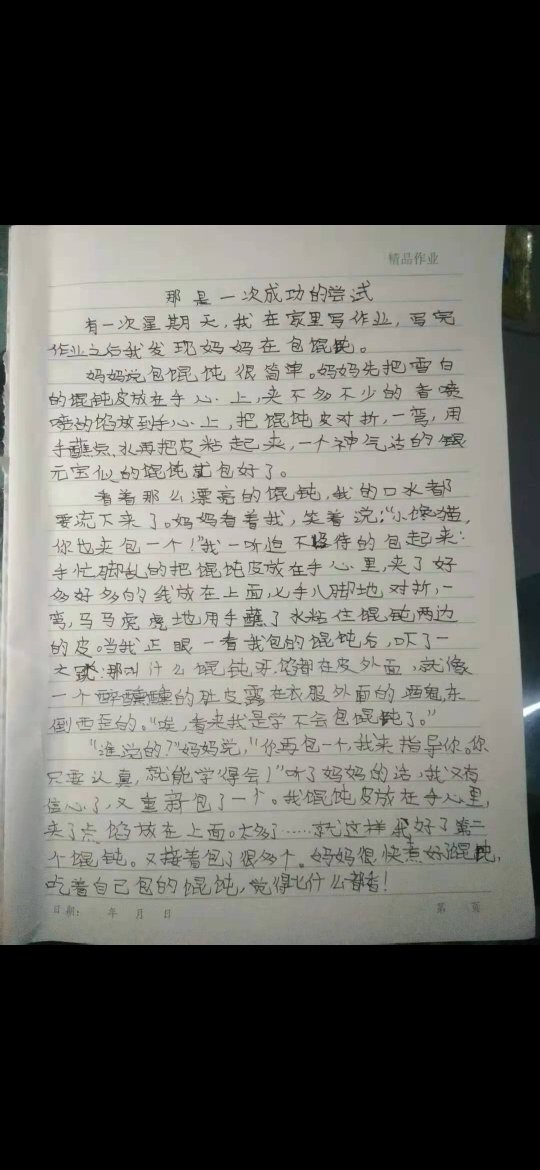 精品作业
那是一次成功的尝试
有一次星期天，我在家里写作业，写完
作业之后我发现妈妈在包馄饨。
妈妈说包馄饨很简单。妈妈先把雪白
的馄饨皮放在手心上，夹不多不少的香喷
喷的馅放到手心上，把馄饨皮对折，一弯，用
手蘸点水再把皮粘起来，一个神气活的银
元宝似的馄饨就包好了。
看着那么漂亮的馄饨，我的口水都
要流下来了。妈妈看着我，笑着说：“小馋猫，
你也来包一个！”我一听迫不及待的包起来：
手忙脚乱的把馄饨皮放在手心里，夹了好
多好多的线放在上面，七手八脚地对折，一
弯，马马虎虎地用手蘸了水粘住馄饨两边
的皮。当我正眼一看我包的馄饨后，吓了一
大跳：那叫什么馄饨呀，馅都在皮外面，就像
一个醉醺醺的肚皮露在衣服外面的酒鬼东
倒西歪的。“唉，看来我是学不会包馄饨了。”
“谁说的？”妈妈说，“你再包一个，我来指导你。你
只要认真，就能学得会！”听了妈妈的话，我又有
信心了，又重新包了一个。我馄饨皮放在手心里，
夹了点馅放在上面。太多了……就这样好了第二
个馄饨。又接着包了很多个。妈妈很快煮好馄饨，
吃着自己包的馄饨，觉得比什么都香！
日期： 年 月 日 第 页